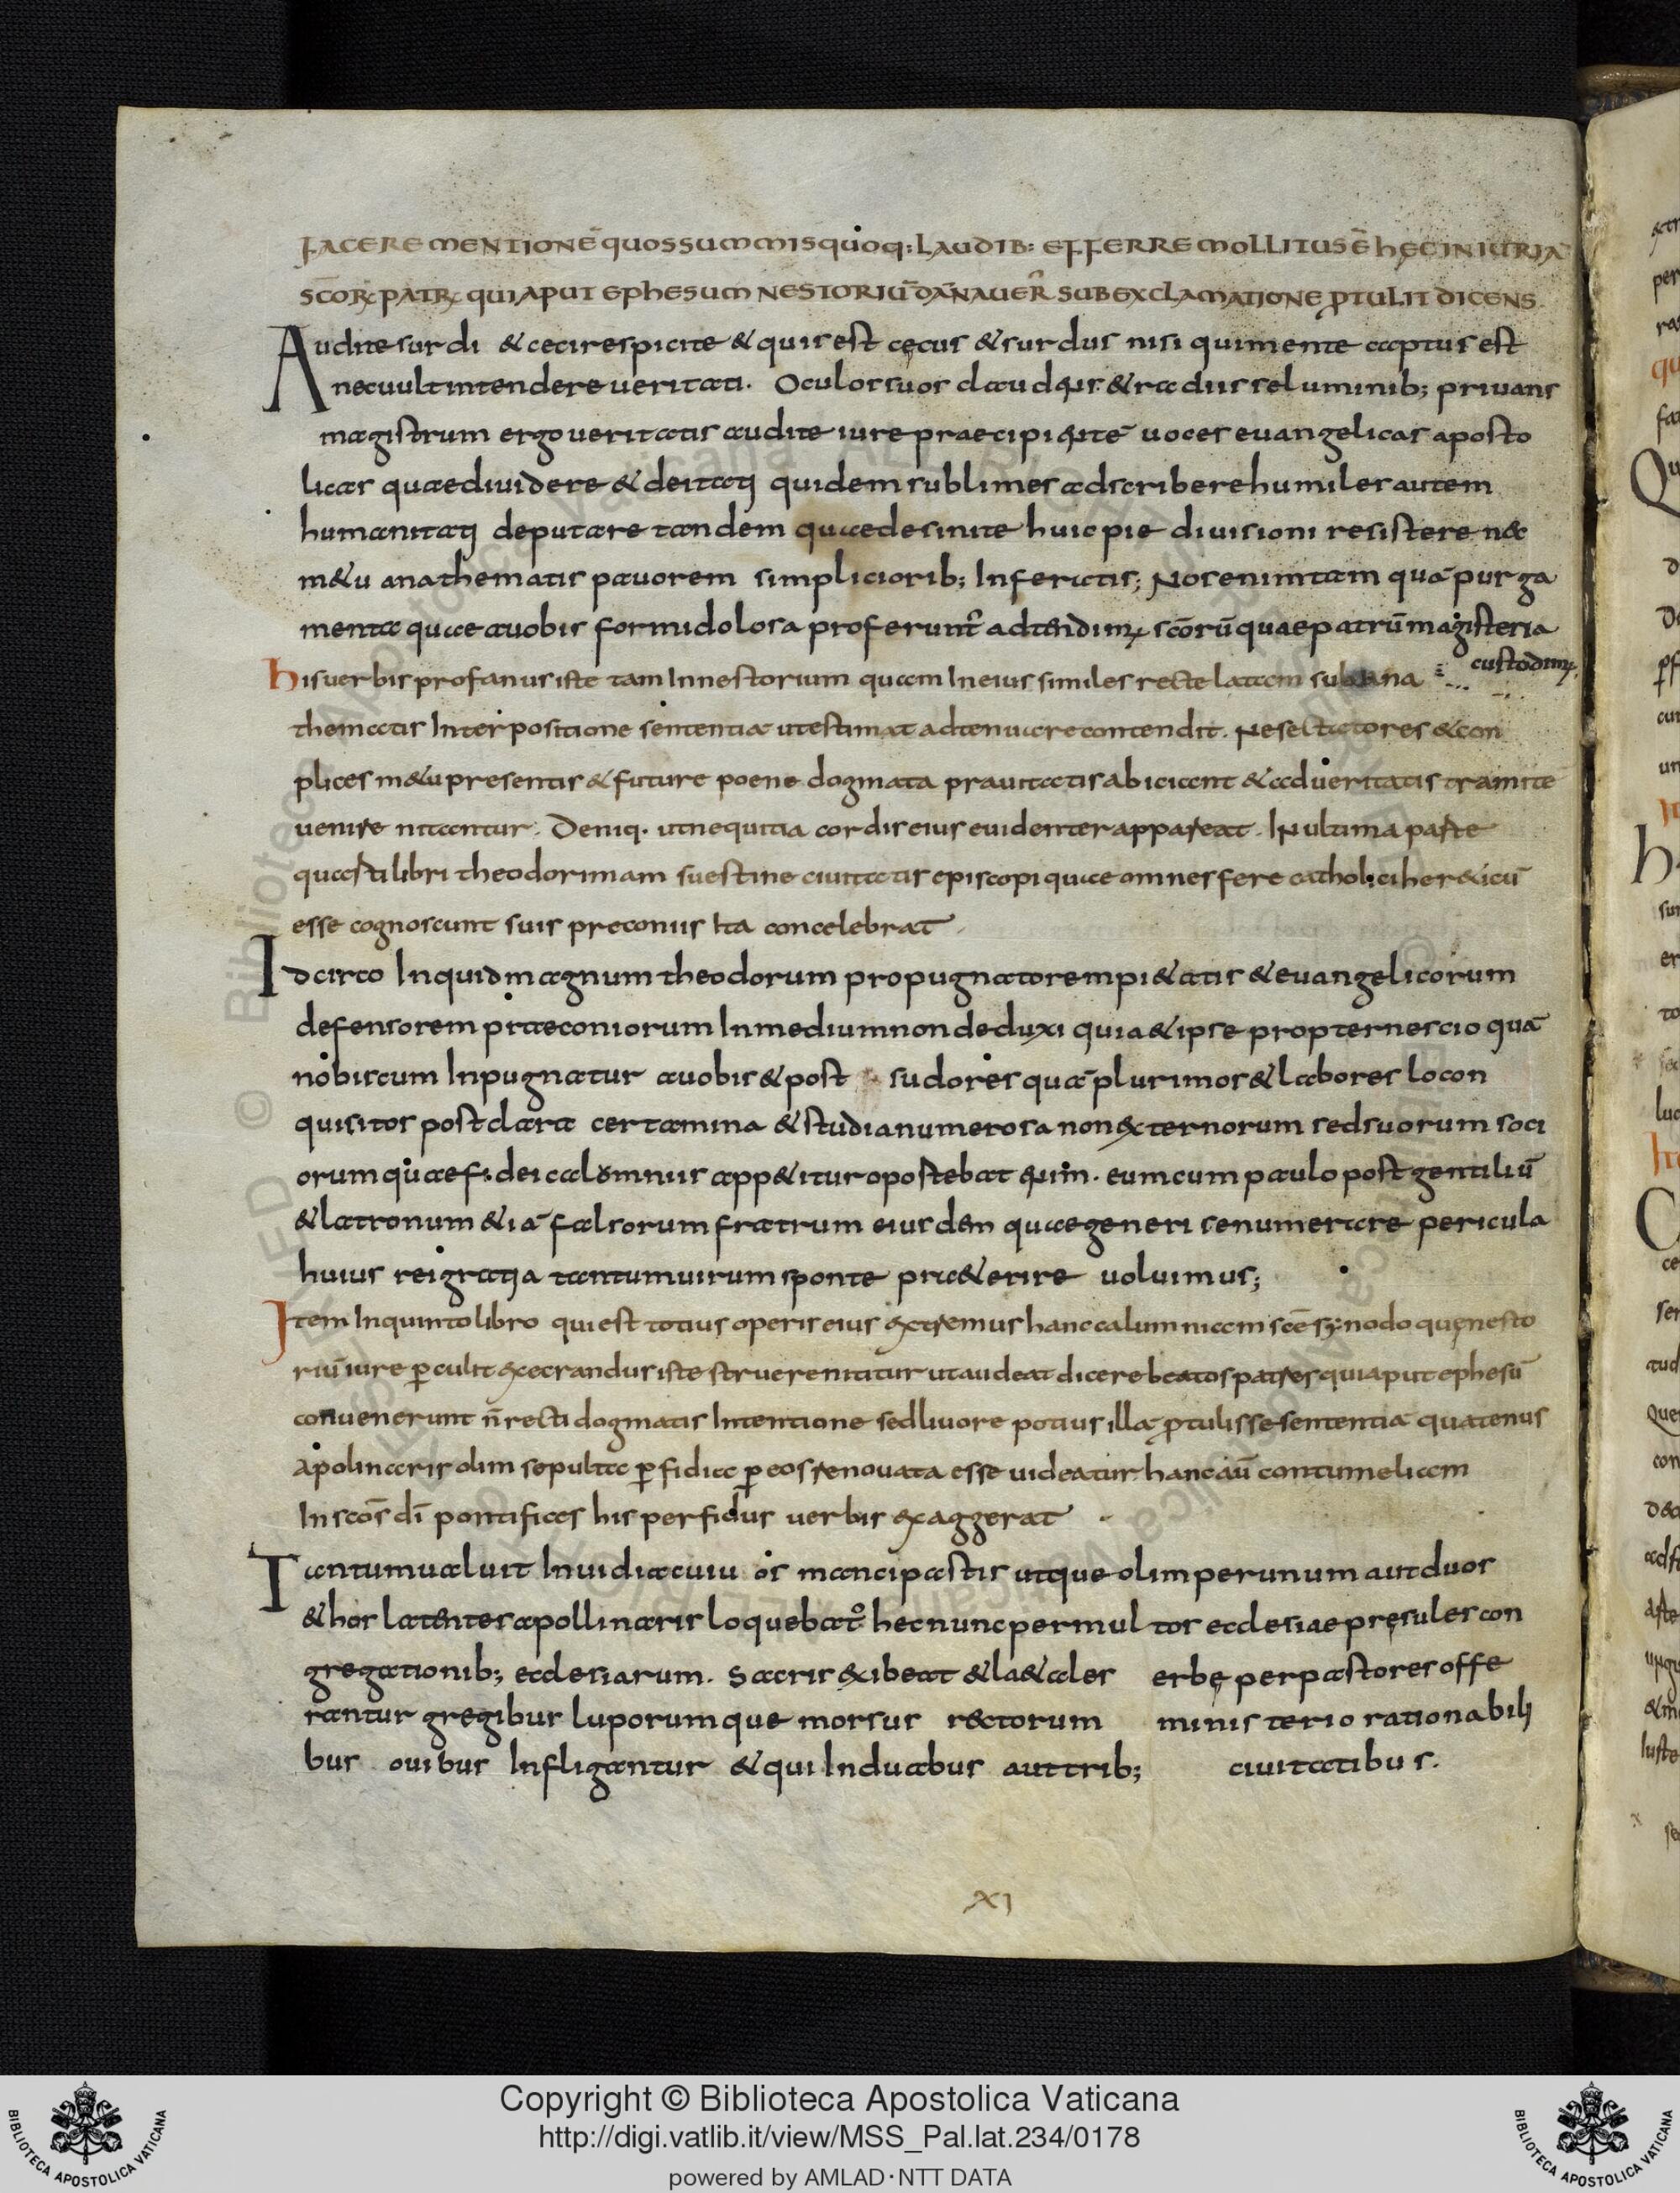 FACERE MENTIONĒ QUOS SUMMIS QUOQ: LAUDIB: EFFERRE MOLLITUS Ē HĘC INIURIĀ
SCŌRꝜ PATRꝜ QUI APUT EPHESUM NESTORIŪ DĀNAUER̄ SUB EXCLAMATIONE PTULIT DICENS.
Audite surdi & ceci respicite & quis est cęcus & surdus nisi qui mente captus est
nec uult intendere ueritati. Oculos suos claudens & radiis se luminib; priuans
magistrum ergo ueritatis audite iure praecipientē uoces euangelicas aposto
licas quae diuidere & deitati quidem sublimes adscribere humiles autem
humanitati deputare tandem quae desinite huic pie diuisioni resistere nec
m&u anathematis pauorem simpliciorib; Inferatis; Nos enim tam quā purga
menta quae a uobis formidolosa proferunt᷑ adtendimꝰ scōrū quae patrū magisteria
custodimꝰ.
his uerbis profanus iste tam In nestorium quam In eius similes recte latam sub ana
thematis Interpositione sententiā ut estimat adtenuare contendit. Ne sectatores & con
plices m&u presentis & future poene dogmata prauitatis abiciant & ad ueritatis tramitē
uenire nitantur. Deniq. ut nequitia cordis eius euidenter appareat. IN ultima parte
quaesti libri theodorim am suestine ciuitatis episcopi quae omnes fere catholici her&icū
esse cognoscunt suis preconiis Ita concelebrat.
Idcirco Inquid magnum theodorum propugnatorem pi&atis & euangelicorum
defensorem praeconiorum In medium non deduxi quia & ipse propter nescio quā
nobiscum Inpugnatur a uobis & post sudores quā plurimos & labores locon
quisitos post clara certamina & studia numerosa non externorum sed suorum soci
orum quae fidei calomniis app&itur opostebat enim. eum cum paulo post gentiliū
& latronum & iā falsorum fratrum eiusdem quae generi se numerare pericula
huius rei gratia tantum uirum sponte prae&erire uoluimus;
Item In quinto libro qui est totius operis eius extremus hanc calumniam scē synodo quę nesto
riū iure perculit execrandus iste struere nititur ut audeat dicere beatos patres qui aput ephesū
conuenerunt n̄ recti dogmatis Intentione sed liuore potius illā ptulisse sententiā quatenus
apolinaris olim sepultae pfidiae p eos renouata esse uideatur hanc aū contumeliam
In scōs dī pontifices his perfidus uerbis exaggerat
Tantum ualuit Inuidia cuiu os mancipastis utque olim per unum aut duos
& hos latenter apollinaris loquebat᷑ hec nunc per multos ecclesiae pręsules con
gregationib; ecclesiarum. Sacris exibeat & la&ales erbę per pastores offe
rantur gregibus luporumque morsus rectorum ministerio rationabili
bus ouibus Infligantur & qui In duabus aut trib; ciuitatibus.
XI
Copyright © Biblioteca Apostolica Vaticana
http://digi.vatlib.it/view/MSS_Pal.lat.234/0178
powered by AMLAD·NTT DATA
BIBLIOTECA APOSTOLICA VATICANA
BIBLIOTECA APOSTOLICA VATICANA